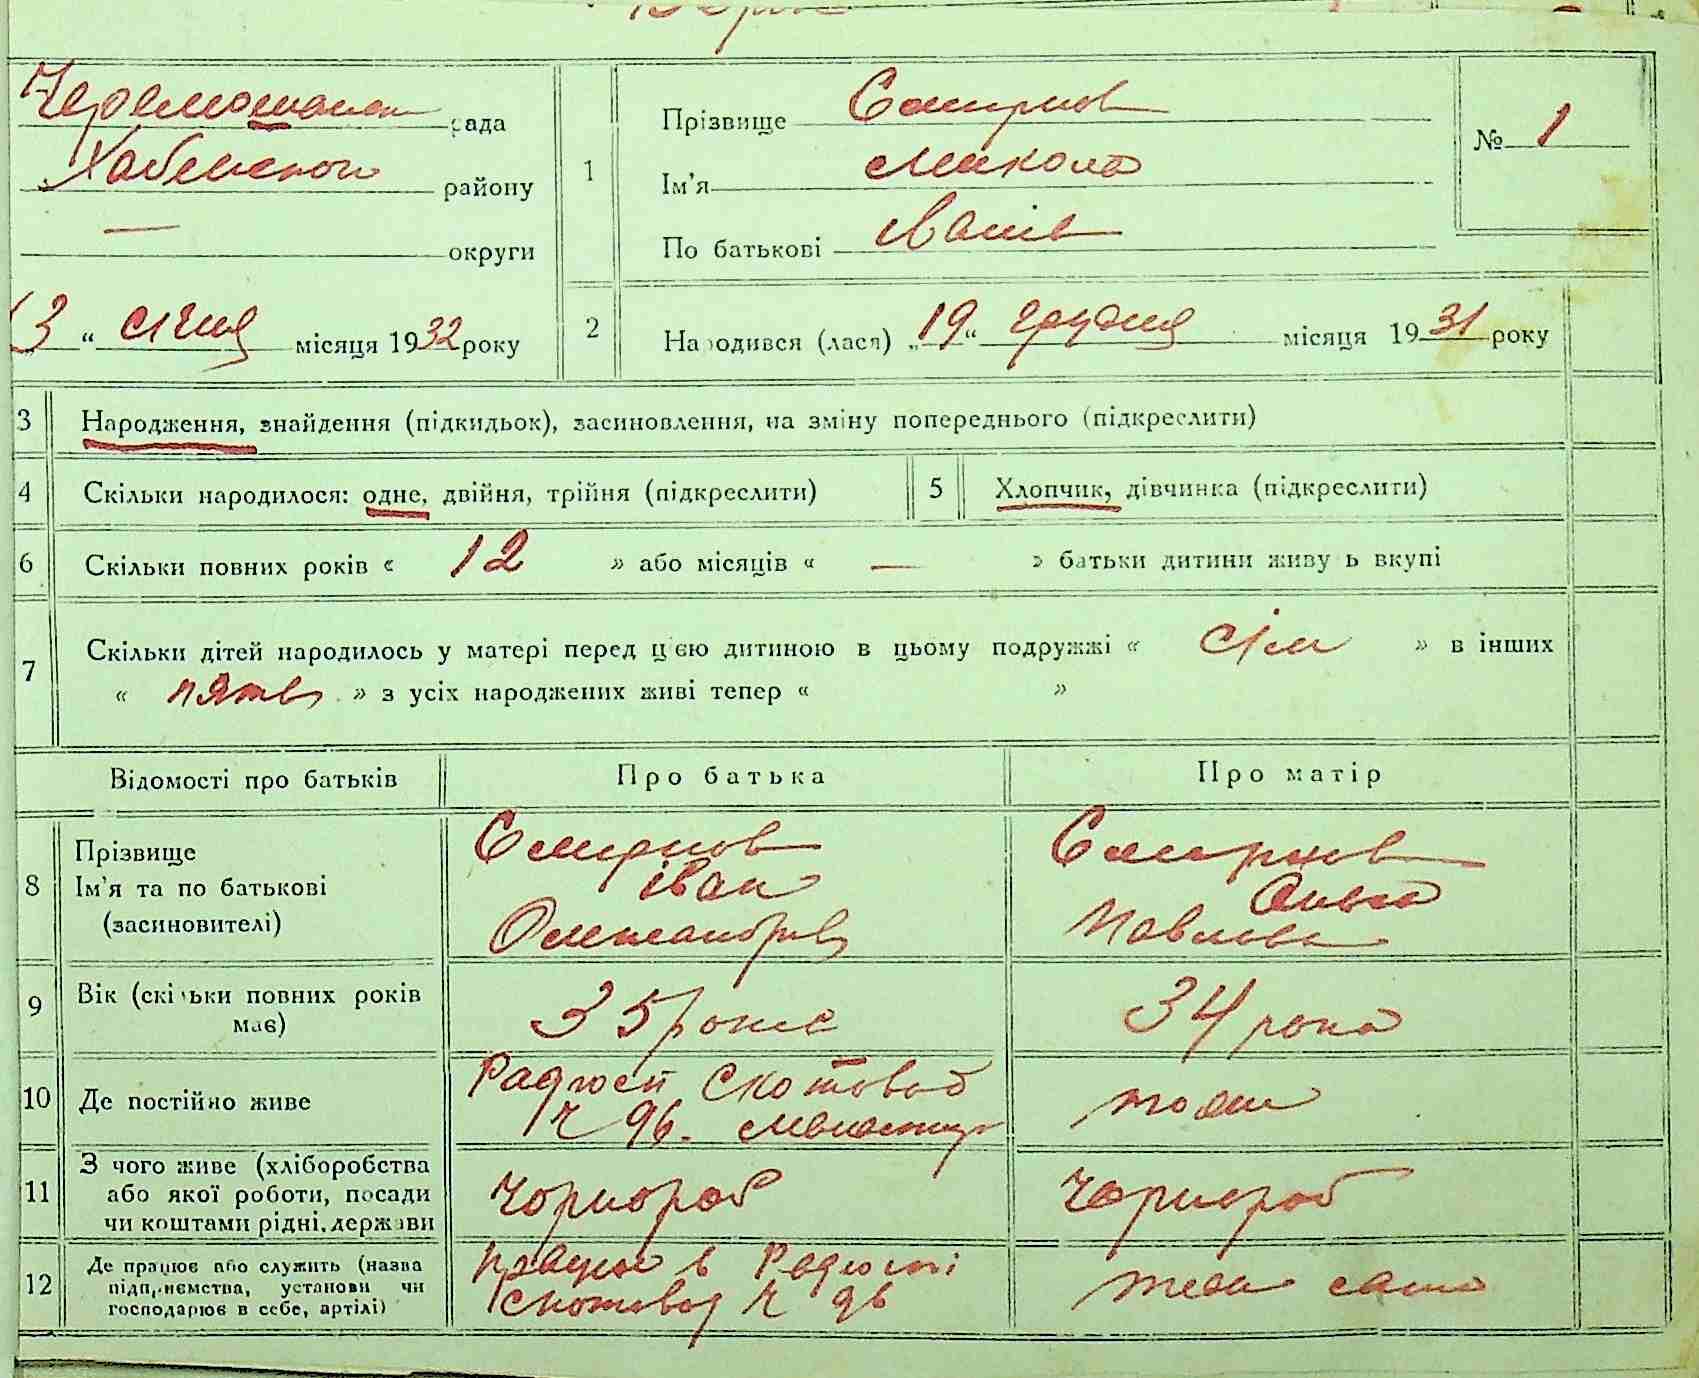 Черемошнян рада
Хабенского району
— округи
13 " січня місяця 1932 року
1
Прізвище Смирнов
Ім'я Микола
По батькові Іванів
№ 1
2 Народився (лася) „19" грудня місяця 1931 року
3 Народження, знайдення (підкидьок), засиновлення, на зміну попереднього (підкреслити)
4 Скільки народилося: одне, двійня, трійня (підкреслити) 5 Хлопчик, дівчинка (підкреслити)
6 Скільки повних років « 12 » або місяців « — » батьки дитини живу ь вкупі
7 Скільки дітей народилось у матері перед цією дитиною в цьому подружжі « сім » в інших
« пять » з усіх народжених живі тепер « »
Відомості про батьків Про батька Про матір
8 Прізвище Смирнов Смирнов
Ім'я та по батькові Іван Ольга
(засиновителі) Олександрів Павлова
9 Вік (скільки повних років має) 35 років 34 рока
10 Де постійно живе Радгосп Скотовод
ч 96. тоже
11 З чого живе (хліборобства
або якої роботи, посади Чорнороб Чорнороб
чи коштами рідні, держави
12 Де працює або служить (назва Працює в Радгоспі
підприємства, установи чи скотовод ч 96 теж саме
господарює в себе, артілі)